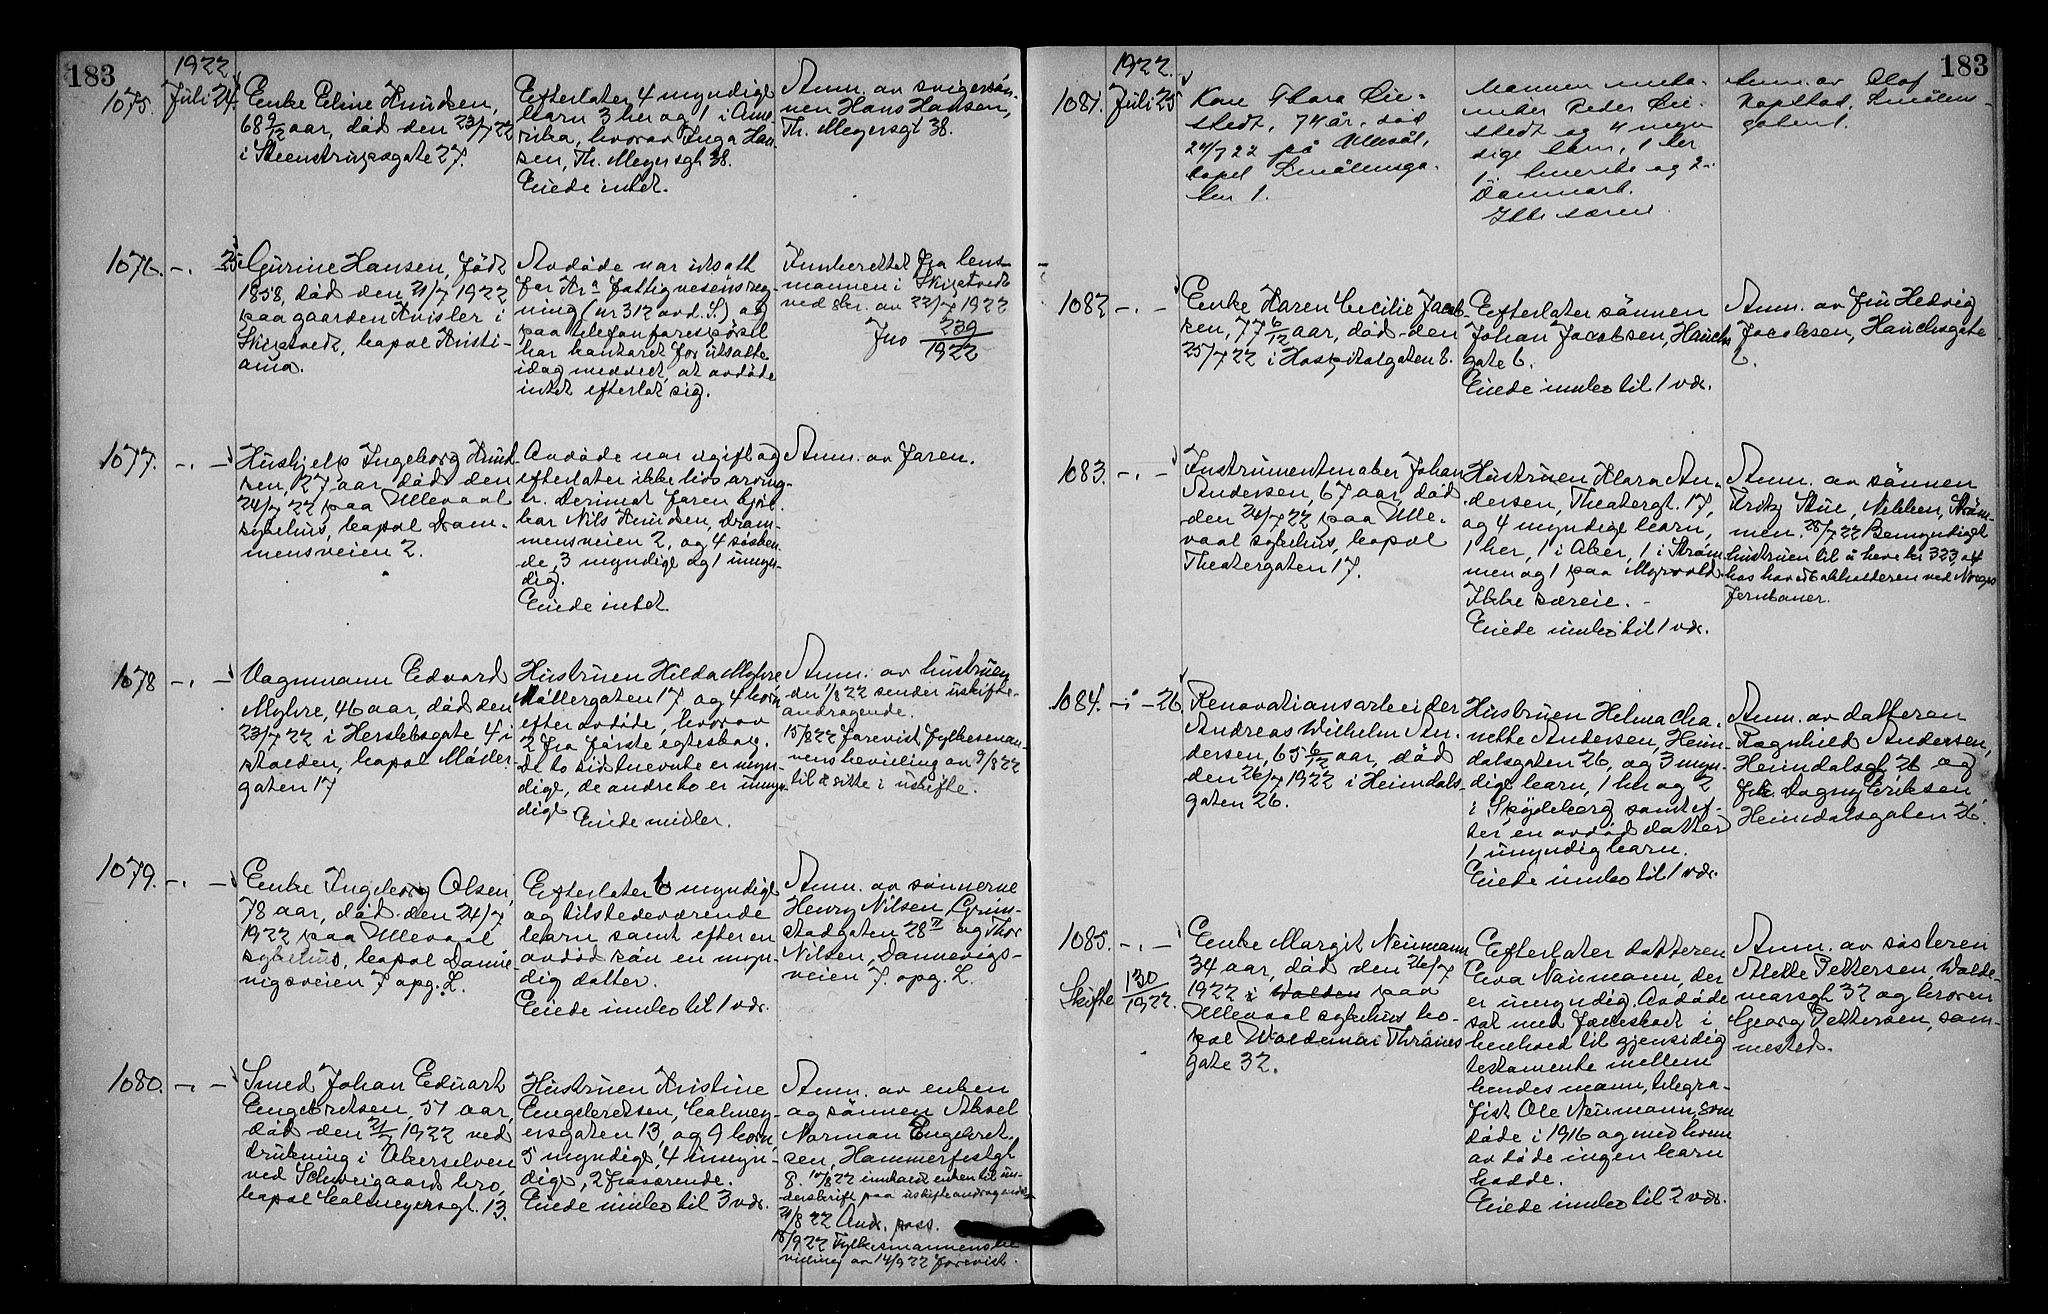 183
1922
1075. Juli 24.
Enke Eline Knudsen,
68 9/12 aar, død den 23/7 22
i Steenstrupsgate 27.
Efterlater 4 myndige
barn 3 her og 1 i Ame-
rika, hvorav Inga Han-
sen, Th. Meyersgt. 38.
Eiede intet.
Anm. av svigersøn-
nen Hans Hansen,
Th. Meyersgt 38.
1076. -. 25.
Gurine Hansen, født
1858, død den 21/7 1922
paa gaarden Kvisler i
Skiptvedt, bopæl Kristi-
ania.
Avdøde var utsatt
for Kr.a fattigvesens reg-
ning (nr 312 avd. S.) og
paa telefonforespørsel
har kontoret for utsatte
idag meddelt, at avdøde
intet efterlot sig.
Innberettet fra lens-
mannen i Skiptvedt
ved skr. av 22/7 1922
Jno 239/1922
1077. -. -
Hushjelp Ingeborg Knud-
sen, 27 aar, død den
24/7 22 paa Ullevaal
sykehus, bopæl Dram-
mensveien 2.
Avdøde var ugift og
efterlater ikke livsarving-
er. Derimot faren
Nils Knudsen, Dram-
mensveien 2, og 4 søsken-
de, 3 myndige og 1 umyn-
dig.
Eiede intet.
Anm. av faren.
1078 -. -
Vognmann Edvard
Myhre, 46 aar, død den
23/7 22 i Herslebsgate 4 i
stalden, bopæl Møller-
gaten 17
Hustruen Hilda Myhre
Møllergaten 17 og 4 barn
efter avdøde, hvorav
2 fra første egteskap.
De to sidstnevnte er myn-
dige, de andre to er umyn-
dige
Eiede midler.
Anm. av hustruen
der 1/8 22 sender uskifte-
andragende.
15/8 22 forevist Fylkesman-
nens bevilling av 9/8 22
til å sitte i uskifte.
1079. -. -
Enke Ingeborg Olsen,
78 aar, død den 24/7
1922 paa Ullevaal
sykehus, bopæl Danne-
vigsveien 7 opg. L.
Efterlater 6 myndige
og tilstedeværende
barn samt efter en
avdød søn en myn-
dig datter.
Eiede innbo til 1 vdr.
Anm. av sønnerne
Henry Nilsen, Grim-
stadgaten 28 II og Thor
Nilsen, Dannevigs-
veien 7. opg. L.
1080. -. -
Smed Johan Edvart
Engebretsen, 51 aar,
død den 21/7 1922 ved
drukning i Akerselven
ved Schweigaards bro,
bopæl Calmeyersgt. 13.
Hustruen Kristine
Engebretsen, Calmey-
ersgaten 13, og 9 barn,
5 myndige, 4 umyn-
dige, 2 fraværende.
Eiede innbo til 3 vdr.
Anm. av enken
og sønnen Aksel
Norman Engebret-
sen, Hammerfestgt
8. 10/8 22 innkaldt enken til un-
derskrift paa uskifteandragende
21/8 22 Andr. pass.
18/9 22 Fylkesmannens be-
villing av 14/9 22 forevist.
183
1922.
1081. Juli 25
Kone Thora Lie-
stedt, 74 år, død
24/7 22 på Ullevål,
bopel Smålensga-
ten 1.
Mannen
Peder Lie-
stedt og 4 myn
dige barn, 1 her
1 i Amerika og 2 i
Danmark.
Ikke særeie
Anm. av Olaf
Kopstad, Smålens-
gaten 1.
1082 -. -
Enke Karen Cecilie Jacob-
sen, 77 6/12 aar, død den
25/7 22 i Hospitalgaten 8.
Efterlater sønnen
Johan Jacobsen, Hauchs
gate 6.
Eiede innbo til 1 vdr.
Anm. av fru Hedvig
Jacobsen, Hauchsgate
6.
1083. -. -
Instrumentmaker Johan
Andersen, 67 aar, død
den 24/7 22 paa Ulle-
vaal sykehus, bopæl
Theatergaten 17.
Hustruen Klara An-
dersen, Theatergt. 17,
og 4 myndige barn,
1 her, 1 i Aker, 1 i Strøm-
men og 1 paa Myrvold.
Ikke særeie. -
Eiede innbo til 1 vdr.
Anm. av sønnen
Fritz Stue, Nikken, Strøm-
men. 28/7 22 Bemyndiget
hustruen til å heve kr 323,04
hos hovedbokholderen ved Norges
Jernbaner.
1084. -. - 26.
Renovationsarbeider
Andreas Wilhelm An-
dersen, 65 6/12 aar, død
den 26/7 1922 i Heimdals-
gaten 26.
Hustruen Helma Cha-
nette Andersen, Heim-
dalsgaten 26, og 3 myn-
dige barn, 1 her og 2
i Skydeberg samt ef-
ter en avdød datter
1 umyndig barn.
Eiede innbo til 1 vdr.
Anm. av datteren
Ragnhild Andersen,
Heimdalsgt 26 og
frk. Dagny Eriksen,
Heimdalsgaten 26.
1085. -. -
Skifte 130/1922.
Enke Margit Neumann
34 aar, død den 26/7
1922 i Walden paa
Ullevaal sykehus bo-
pæl Waldemar Thranes
gate 32.
Efterlater datteren
Eva Naumann, der
er umyndig. Avdøde
sat med fællesboet i
henhold til gjensidig
testamente mellem
hendes mann, telegra-
fist Ole Neumann, som
døde i 1916 og med hvem
avdøde ingen barn
hadde.
Eiede innbo til 2 vdr.
Anm. av søsteren
Mette Pettersen, Walde-
marsgt 32 og broren
Georg Pettersen, sam-
mested.